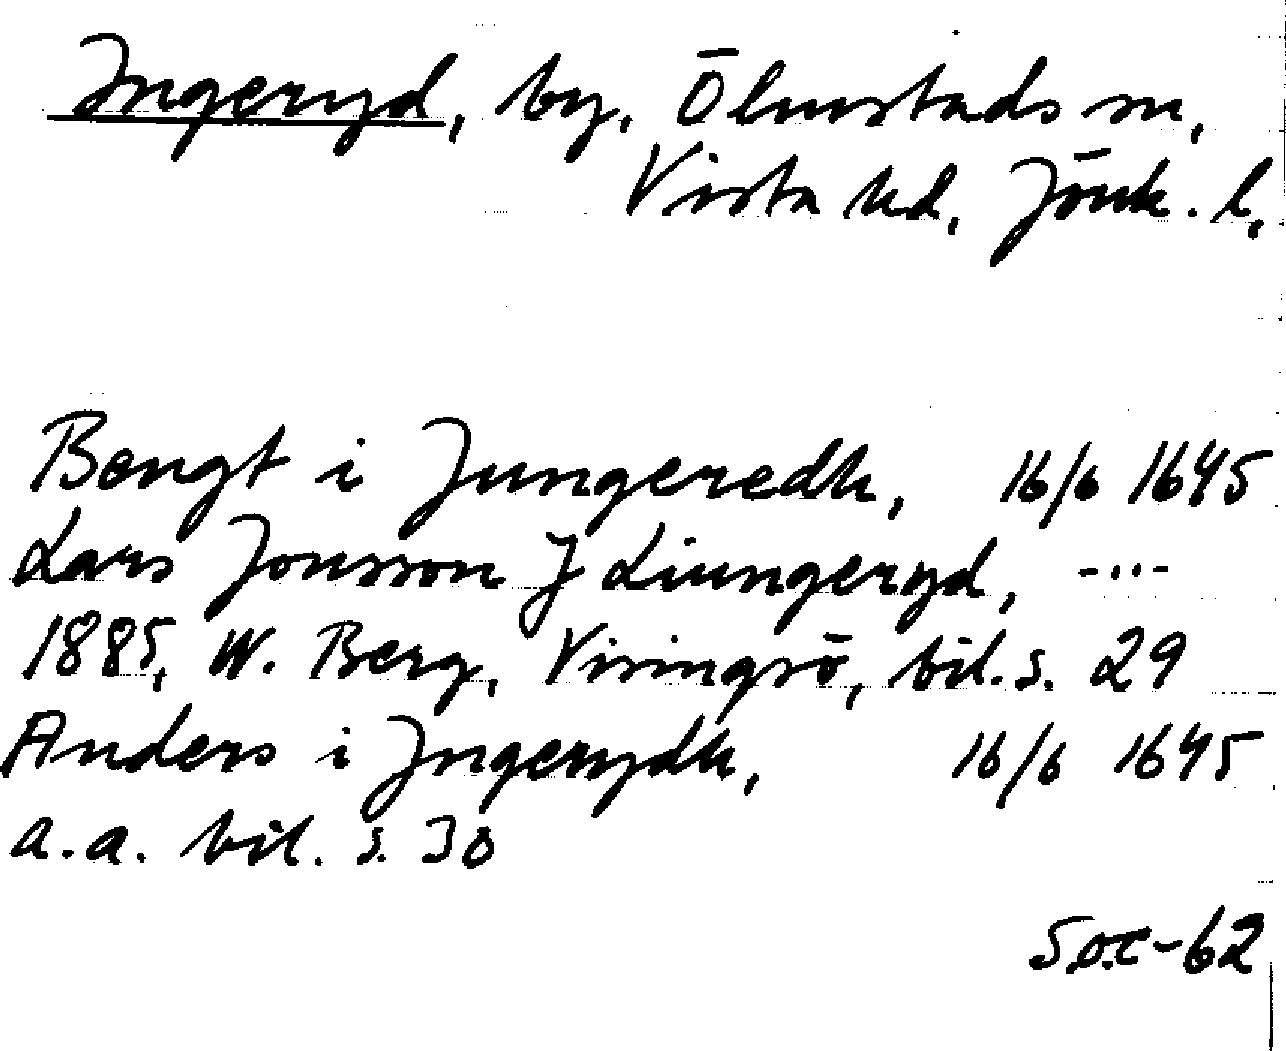 Ingeryd, by, Ölmstads sn,
Vista hd, Jönk. l.
Bengt i Jungeredh, 16/6 1645
Lars Jonsson J Liungeryd, -··-
1885, W. Berg, Visingsö, bil. s. 29
Anders i Jngerydh, 16/6 1645
a.a. bil. s. 30
S.o.c-62